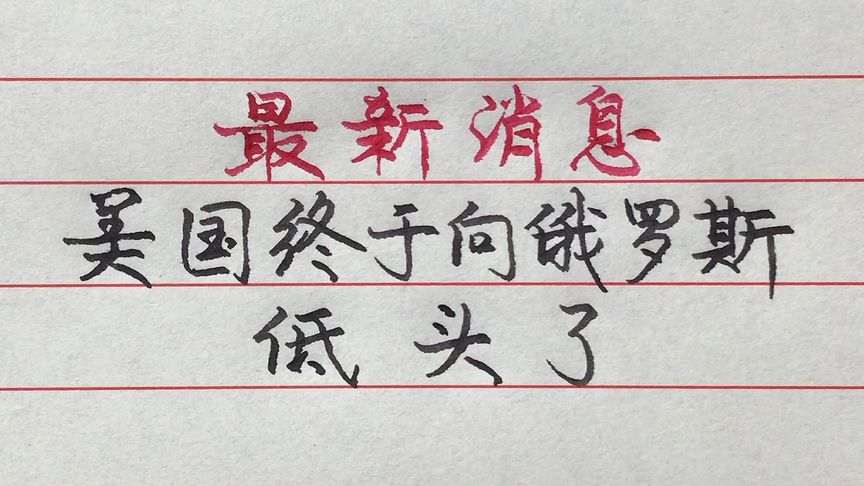 最新消息
美国终于向俄罗斯
低头了